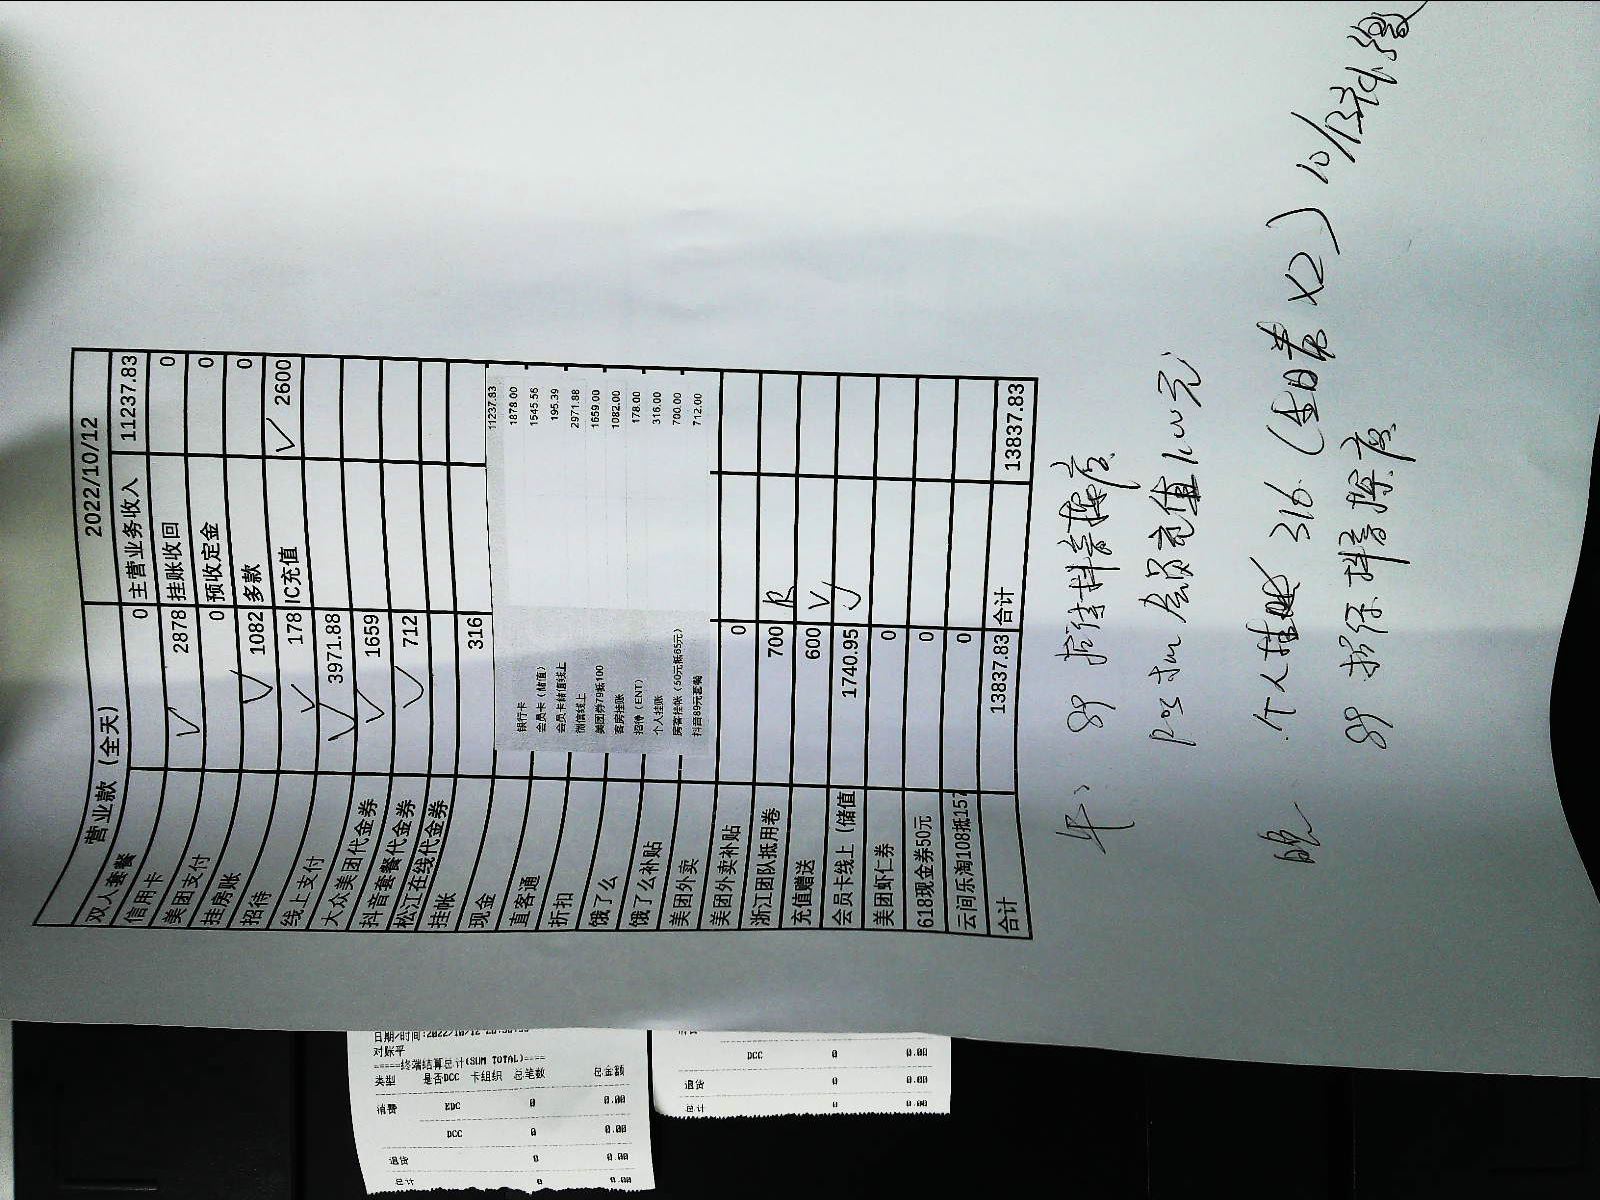 营业款（全天） 2022/10/12
双人套餐 0 主营业务收入 11237.83
信用卡 2878 挂账收回 0
美团支付 0 预收定金 0
挂房账 1082 多款 0
招待 178 IC充值 2600
线上支付 3971.88
大众美团代金券 1659
抖音套餐代金券 712
松江在线代金券
挂帐 316
现金
直客通
折扣
饿了么
饿了么补贴
美团外卖
美团外卖补贴 0
浙江团队抵用卷 700
充值赠送 600
会员卡线上（储值 1740.95
美团虾仁券 0
618现金券50元 0
云间乐淘108抵157 0
合计 13837.83 合计 13837.83
11237.83
银行卡 1878.00
会员卡（储值） 1545.56
会员卡储值线上 195.39
微信线上 2971.88
美团券79抵100 1659.00
客房挂账 1082.00
招待（ENT） 178.00
个人挂账 316.00
房客挂帐（50元抵65元） 700.00
抖音89元套餐 712.00
POS 会员充值
个人挂账 316（自费X2）10/13
抖音
日期/时间:2022/10/12
对账平
=====终端结算总计(SUM TOTAL)====
类型 是否DCC 卡组织 总笔数 总金额
消费 EDC 0 0.00
DCC 0 0.00
退货 0 0.00
总计 0 0.00
DCC 0 0.00
退货 0 0.00
总计 0 0.00